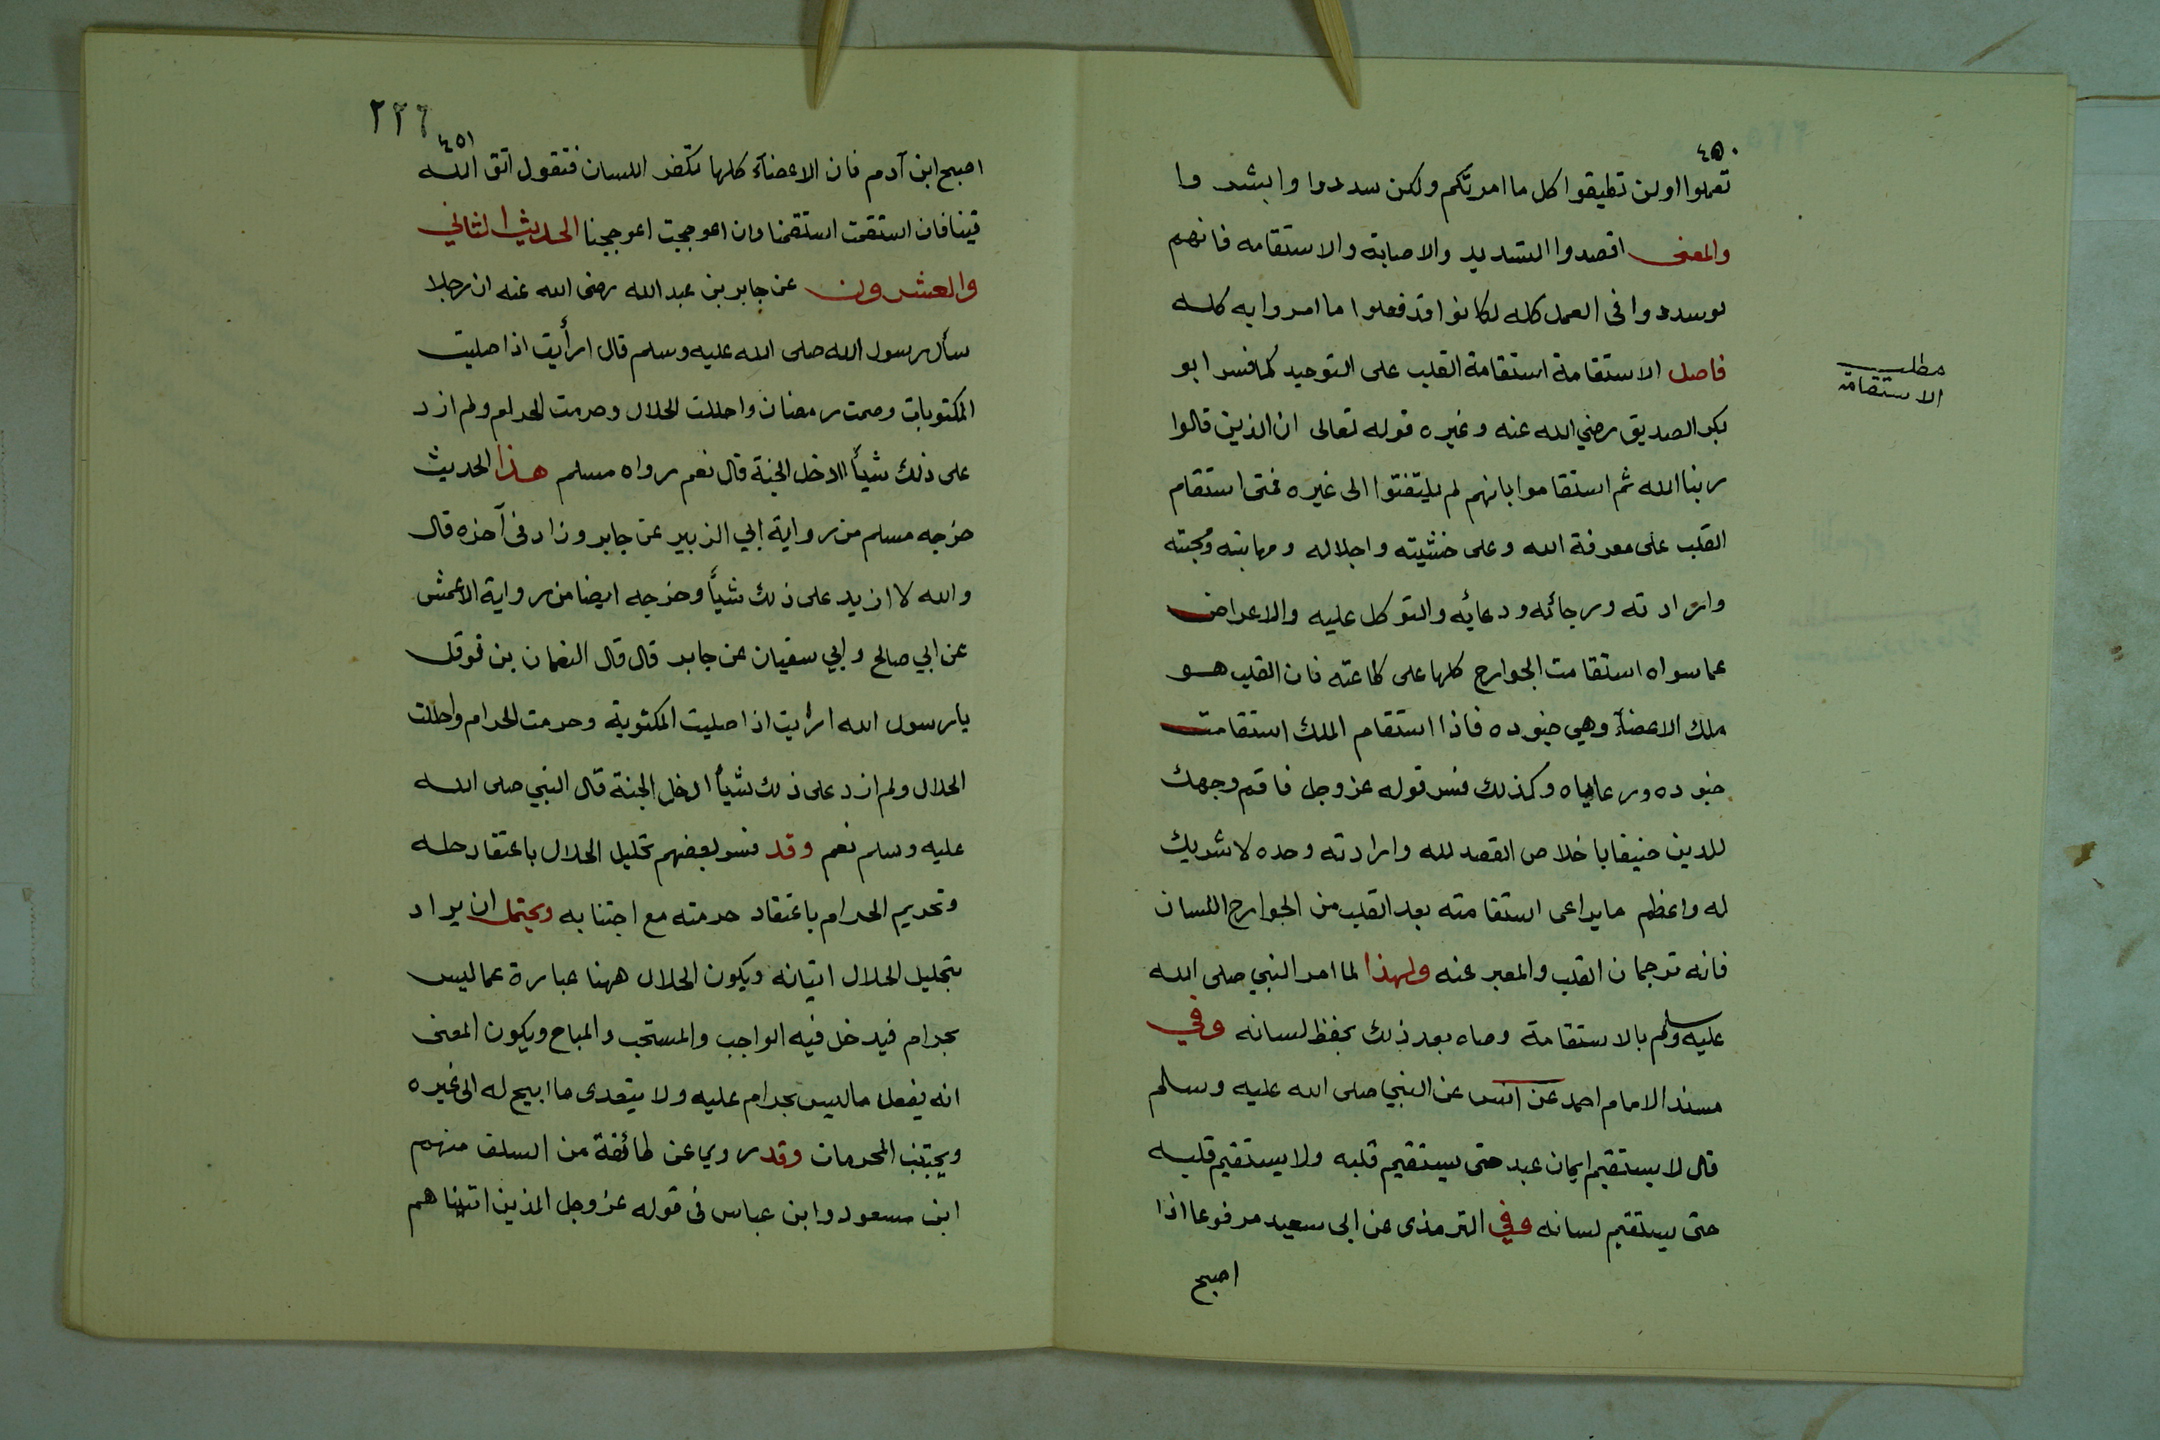 ٤٥٠
تعملوا اولن تطيقوا كل ما امرتكم ولكن سددوا وابشروا
والمعنى اقصدوا التسديد والاصابة والاستقامه فانهم
لو سددوا فى العمل كله لكانوا قد فعلوا ما امروا به كله
فاصل الاستقامة استقامة القلب على التوحيد كما فسر ابو
مطلب
الاستقامة
بكر الصديق رضي الله عنه وغيره قوله تعالى ان الذين قالوا
ربنا الله ثم استقاموا بانهم لم يلتفتوا الى غيره فمتى استقام
القلب على معرفة الله وعلى خشيته واجلاله ومهابته ومحبته
وارادته ورجائه ودعايه والتوكل عليه والاعراض
عما سواه استقامت الجوارح كلها على طاعته فان القلب هو
ملك الاعضآء وهي جنوده فاذا استقام الملك استقامت
جنوده ورعاياه وكذلك فسر قوله عز وجل فاقم وجهك
للدين حنيفا باخلاص القصد لله وارادته وحده لا شريك
له واعظم ما يراعى استقامته بعد القلب من الجوارح اللسان
فانه ترجمان القلب والمعبر عنه ولهذا لما امر النبي صلى الله
عليه وسلم بالاستقامة وصاه بعد ذلك بحفظ لسانه وفي
مسند الامام احمد عن انس عن النبي صلى الله عليه وسلم
قال لا يستقيم ايمان عبد حتى يستقيم قلبه ولا يستقيم قلبه
حتى يستقيم لسانه وفي الترمذى عن ابى سعيد مرفوعا اذا
اصبح
٢٢٦
٤٥١
اصبح ابن آدم فان الاعضآء كلها تكفر اللسان فتقول اتق الله
فينا فان استقمت استقمنا وان اعوججت اعوججنا الحديث الثاني
والعشرون عن جابر بن عبد الله رضى الله عنه ان رجلا
سأل رسول الله صلى الله عليه وسلم قال ارأيت اذا صليت
المكتوبات وصمت رمضان واحللت الحلال وحرمت الحرام ولم ازد
على ذلك شيأ االدخل الجنة قال نعم رواه مسلم هذا الحديث
خرجه مسلم من رواية ابي الزبير عن جابر وزاد فى آخره قال
والله لا ازيد على ذلك شيأ وخرجه ايضا من رواية الأعمش
عن ابي صالح وابي سفيان عن جابر قال قال النعمان بن قوقل
يا رسول الله ارأيت اذا صليت المكتوبة وحرمت الحرام واحللت
الحلال ولم ازد على ذلك شيأ ادخل الجنة قال النبي صلى الله
عليه وسلم نعم وقد فسر بعضهم تحليل الحلال باعتقاد حله
وتحريم الحرام باعتقاد حرمته مع اجتنابه ويحتمل ان يراد
بتحليل الحلال اتيانه ويكون الحلال ههنا عبارة عما ليس
بحرام فيدخل فيه الواجب والمستحب والمباح ويكون المعنى
انه يفعل ما ليس بحرام عليه ولا يتعدى ما ابيح له الى غيره
ويجتنب المحرمات وقد روي عن طائفة من السلف منهم
ابن مسعود وابن عباس فى قوله عز وجل الذين اتيناهم